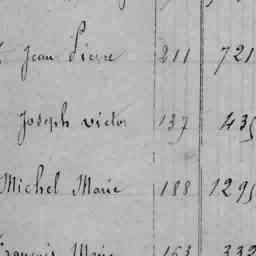 Jean Pierre 211 721
Joseph victor 137 435
Michel Marie 188 1295
François Marie 163 332